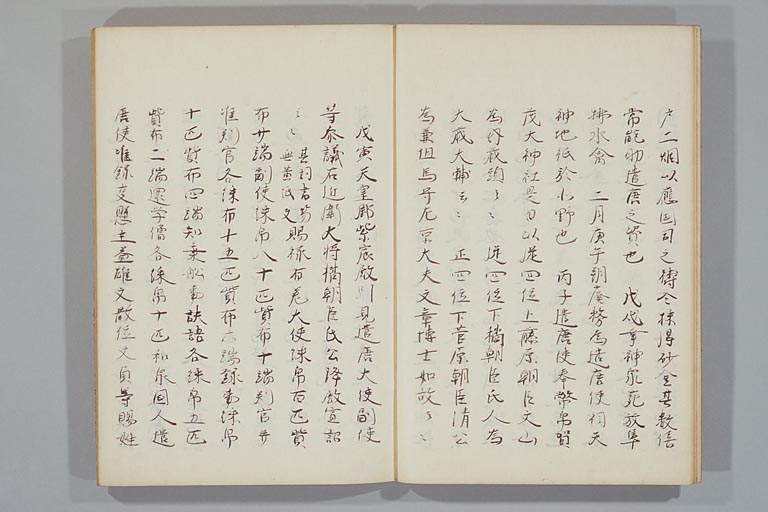 戸二烟以應国司之摶令採得砂金其数倍
常能助遣唐之資也　戊戌幸神泉苑放隼
拂水禽　二月庚午朔庚務為遣唐使祠天
神地祇於小野也　丙子遣唐使奉幣帛賀
茂大神社是日以從四位上藤原朝臣文山
為 從四位下橘朝臣氏人為
大蔵大輔云〻　正四位下菅原朝臣清公
為兼但馬守左京大夫文章博士如故〻〻
戊寅天皇御紫宸殿引見遣唐大使副使
等参議右近衛大将橘朝臣氏公降殿宣詔
〻〻其詞書黄紙文賜禄有差大使綵帛百匹貲
布廿端副使綵帛八十匹貲布十端判官
准判官各綵布十五匹貲布六端録事綵帛
十匹貲布四端知乗舩事訳語各綵帛五匹
貲布二端還学僧各綵帛十匹和泉国人遣
唐使准録事縣主益雄文散位文貞等賜姓